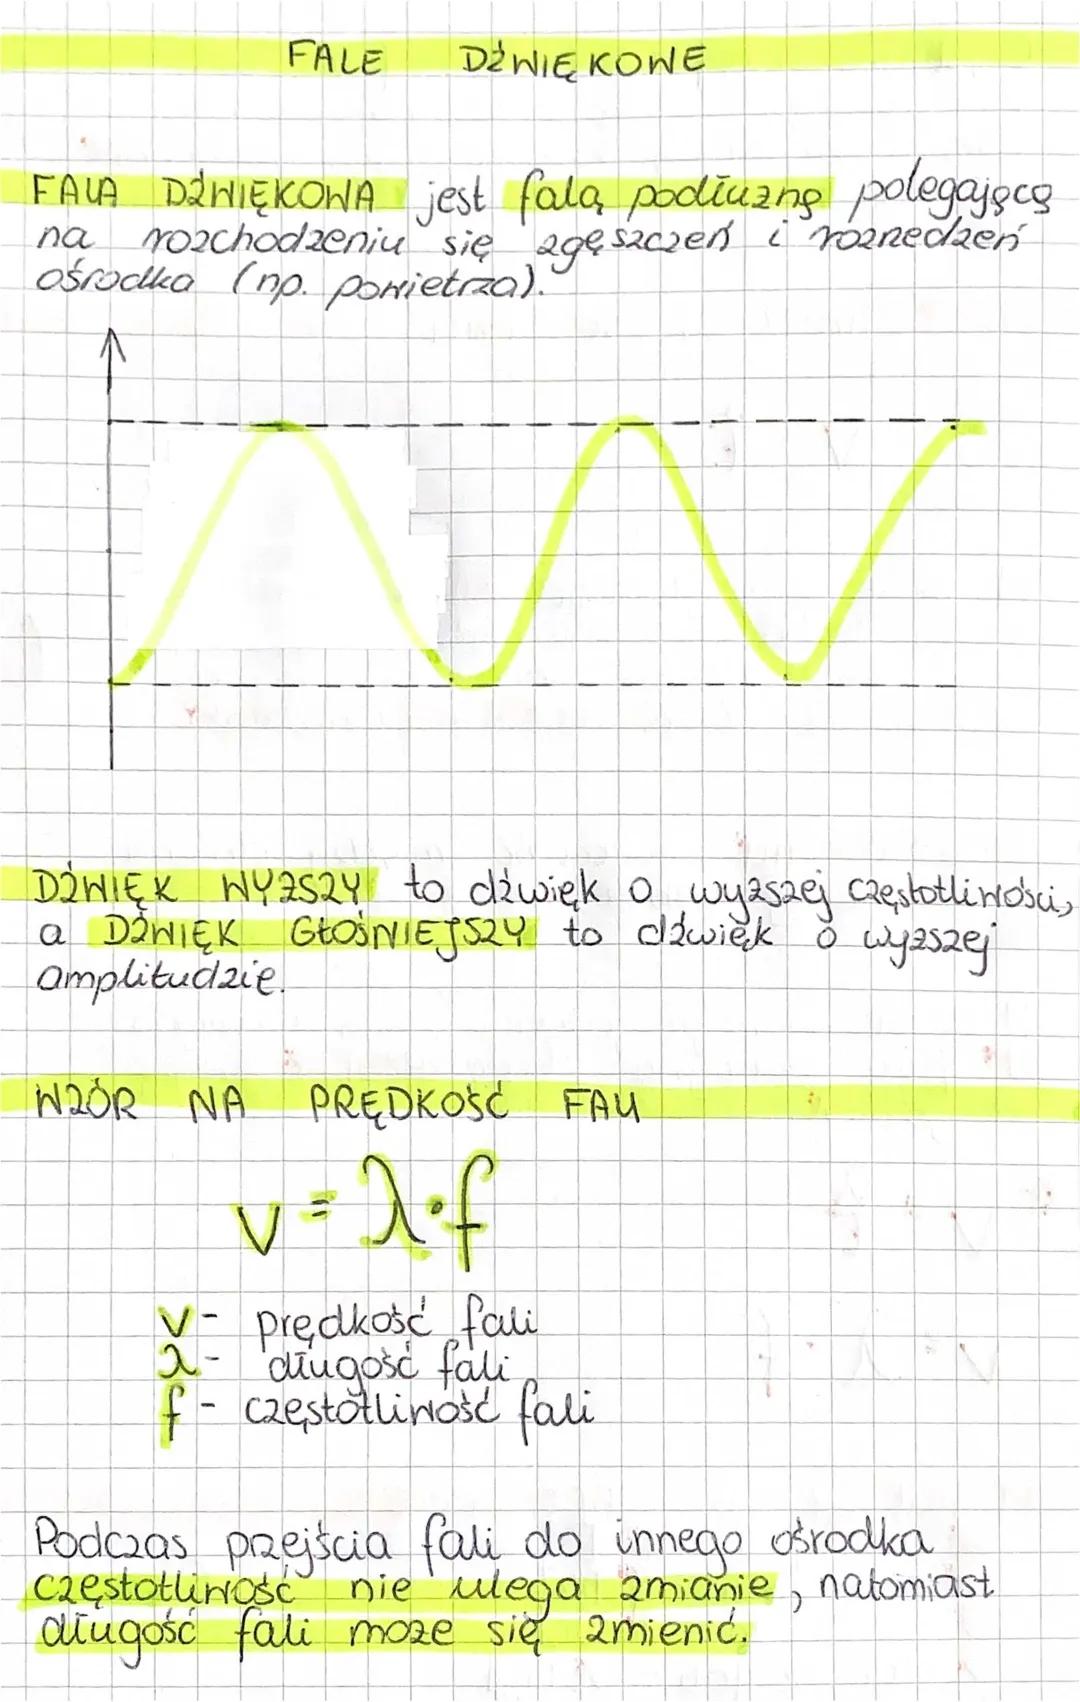 FALE DŹWIĘKOWE
FALA DŹWIĘKOWA jest falą podłużną polegającą
na rozchodzeniu się zgęszczeń i rozrzedzeń
ośrodka (np. powietrza).
DŹWIĘK WYŻSZY to dźwięk o wyższej częstotliwości,
a DŹWIĘK GŁOŚNIEJSZY to dźwięk o wyższej
amplitudzie.
WZÓR NA PRĘDKOŚĆ FALI
v = λ · f
v - prędkość fali
λ - długość fali
f - częstotliwość fali
Podczas przejścia fali do innego ośrodka
częstotliwość nie ulega zmianie, natomiast
długość fali może się zmienić.